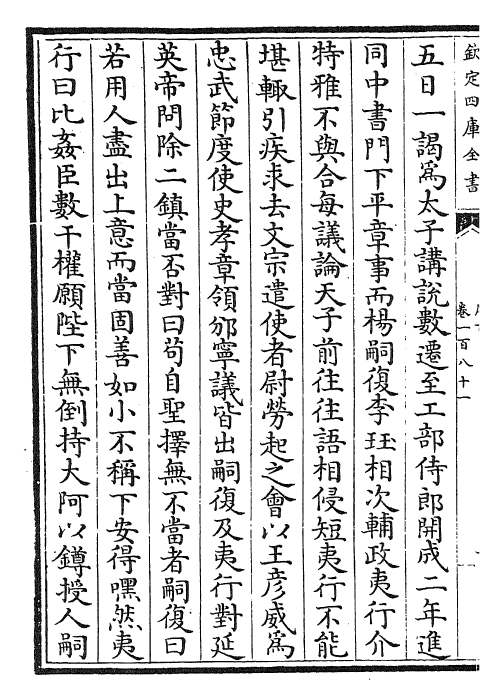 欽定四庫全書
卷一百八十一
五日一謁為太子講說數遷至工部侍郎開成二年進
同中書門下平章事而楊嗣復李珏相次輔政夷行介
特雅不與合每議論天子前往往語相侵短夷行不能
堪輙引疾求去文宗遣使者尉勞起之會以王彦威為
忠武節度使史孝章領邠寧議皆出嗣復及夷行對延
英帝問除二鎮當否對曰茍自聖擇無不當者嗣復曰
若用人盡出上意而當固善如小不稱下安得嘿然夷
行曰比姦臣數干權願陛下無倒持大阿以鐏授人嗣